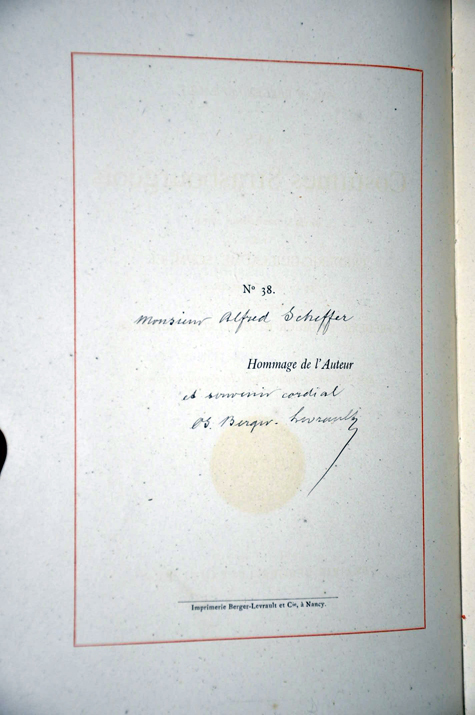 N° 38.
Monsieur Alfred Scheffer
Hommage de l'Auteur
et souvenir cordial
O. Berger-Levrault
Imprimerie Berger-Levrault et Cie, à Nancy.